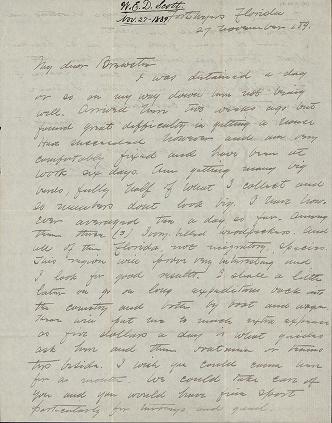 W.E.D. Scott
Nov. 27-1889
Fort Myers Florida
27 November 189.
My dear Brewster
I was detained a day
or so on my way down not being
well. Arrived here two weeks ago but
found great difficulty in getting a house
Have succeeded however and am very
comfortably fixed and have been at
work six days. Am getting many big
birds fully half of what I collect and
so numbers dont look big. I have how-
ever averaged ten a day so far. Among
them three (3) Ivory billed woodpeckers. And
all of them Florida not migratory species.
This region will prove very interesting and
I look for good results. I shall a little
later on go on long expeditions back into
the country and both by boat and wagon.
There will but be to much extra expense
as five dollars a day is what guides
ask here and then boatmen or teams
beside. I wish you could come down
for a month we could take care of
you and you would have fine sport
particularly for turkeys and quail